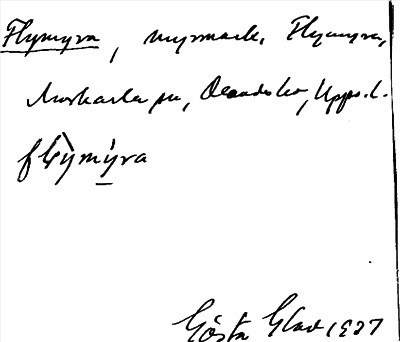 Flymyra, myrmark, Flymyra,
Morkarla sn, Olands hd, Upps. l.
flỳmýra
Gösta Glad 1937